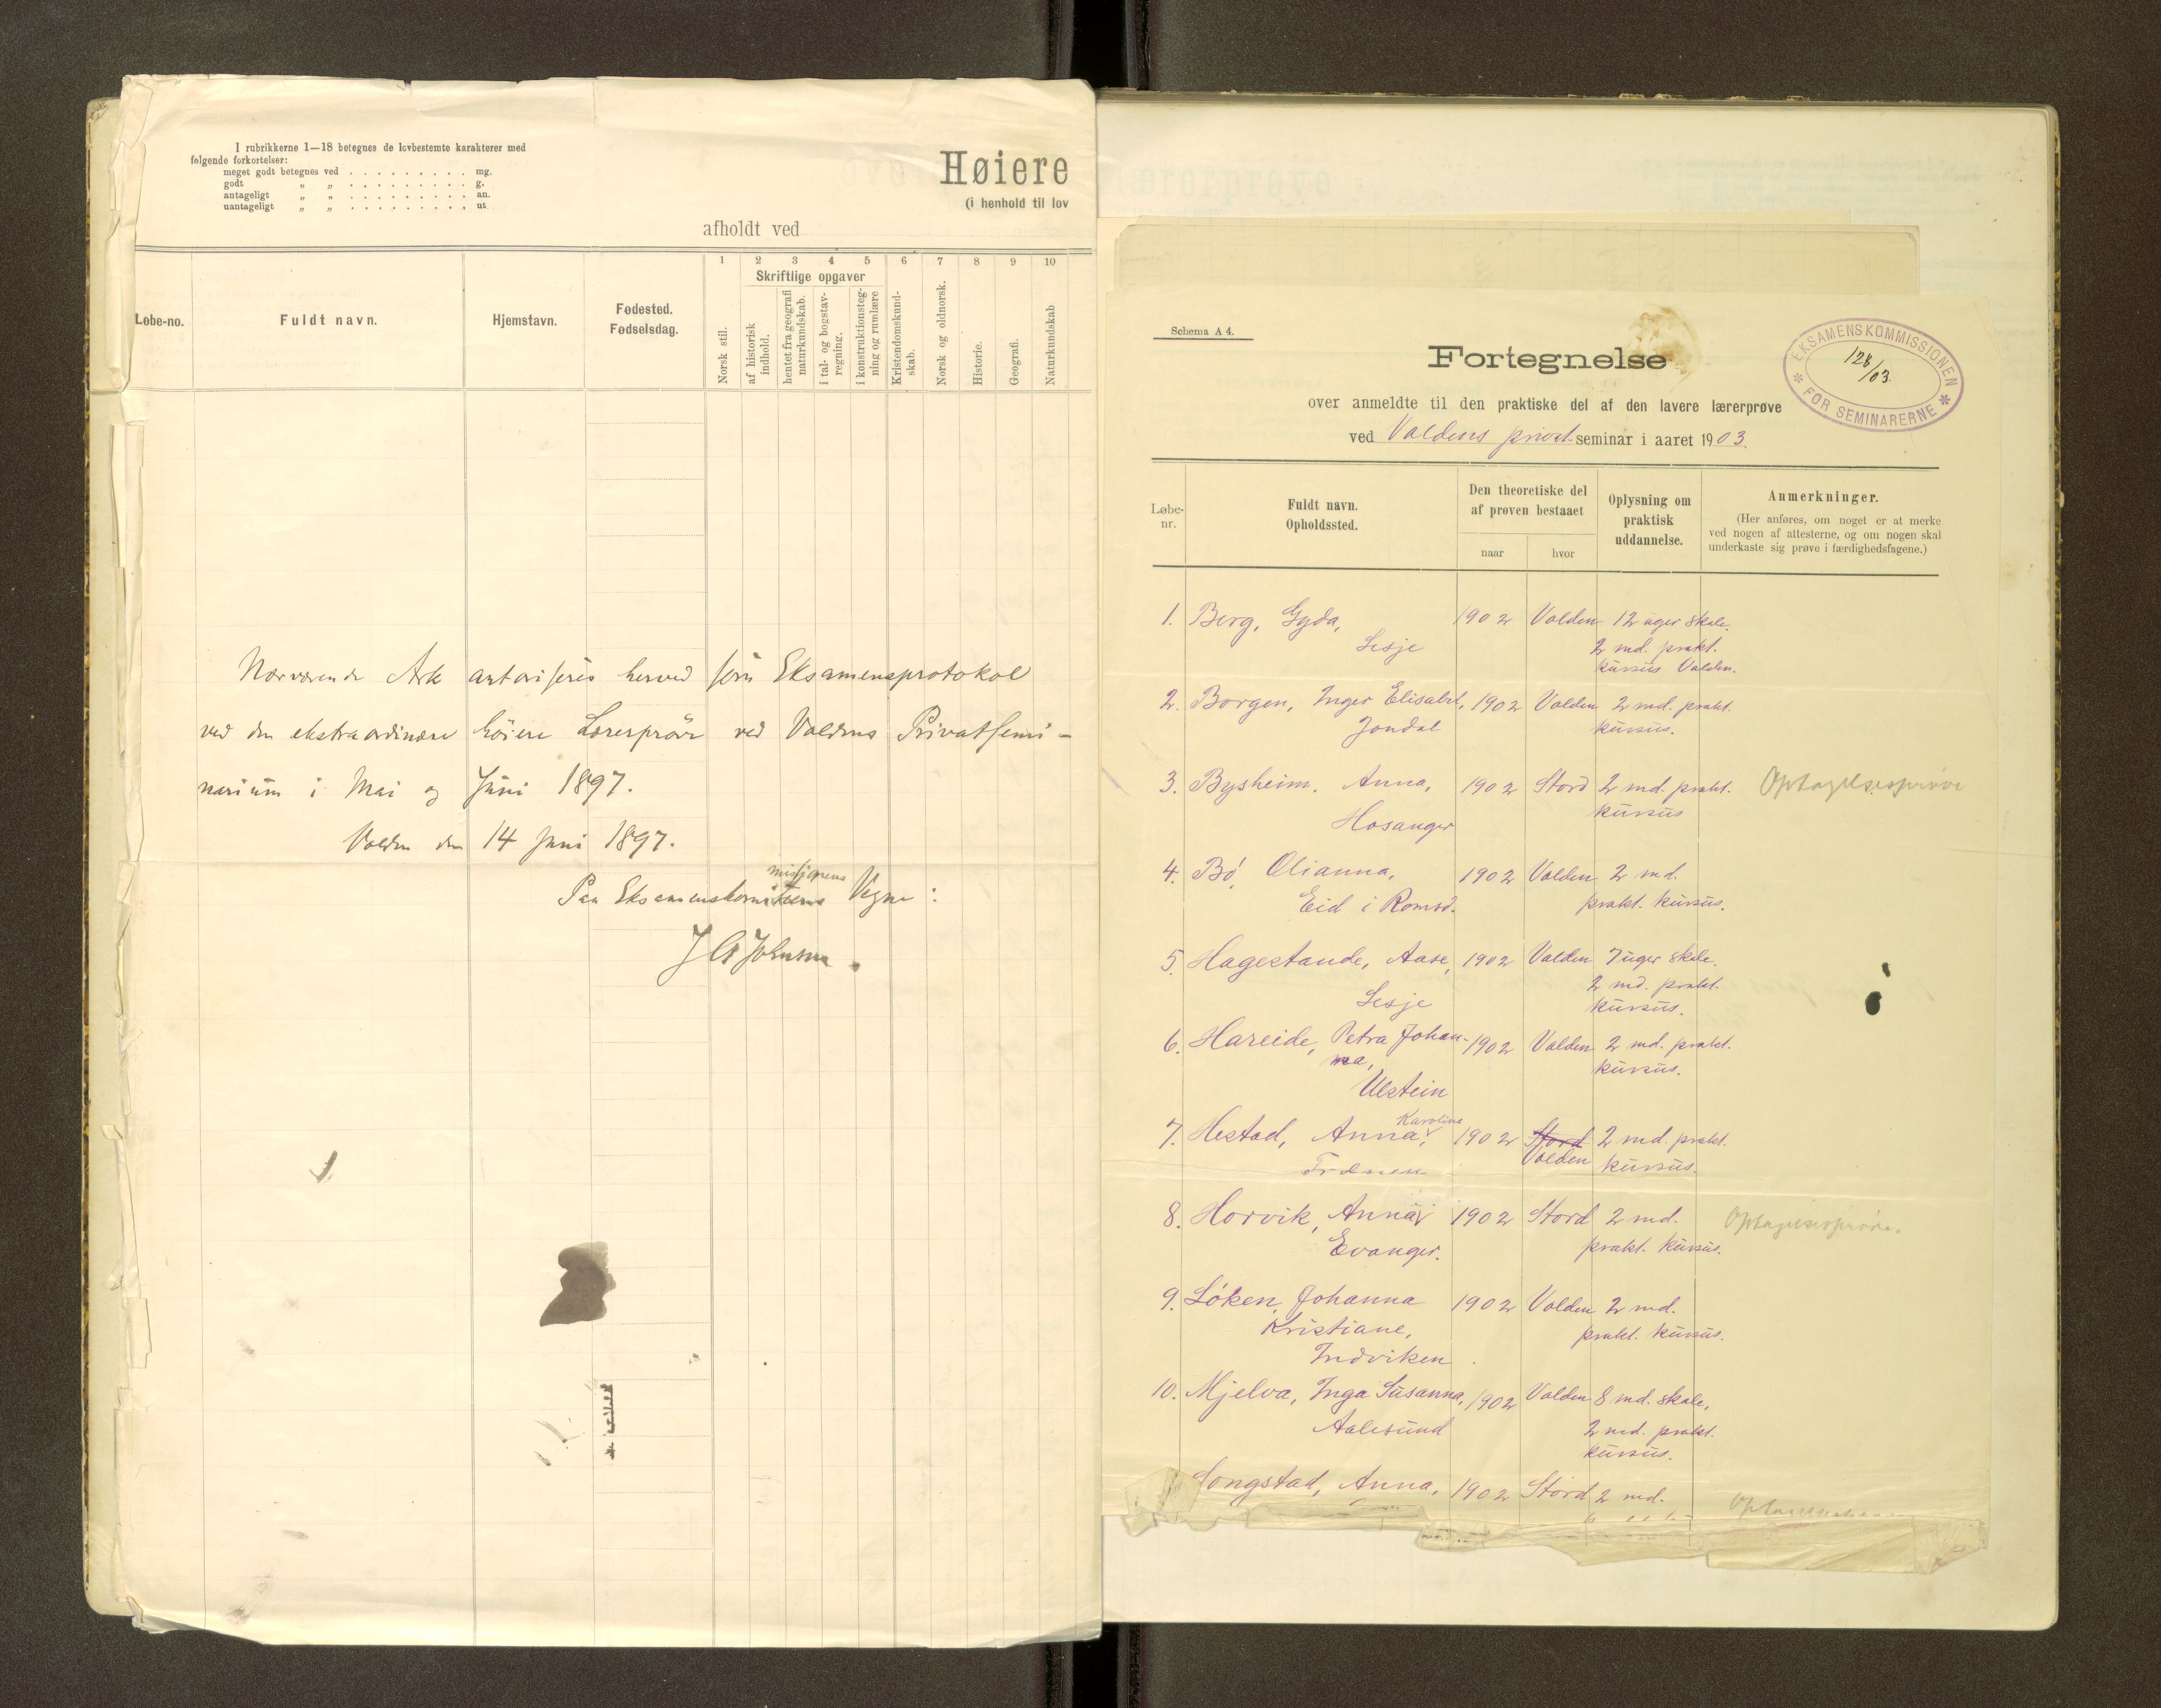 I rubrikkerne 1—18 betegnes de lovbestemte karakterer med
følgende forkortelser:
meget godt betegnes ved . . . . . . . . . mg.
godt „ „ . . . . . . . . . g.
antageligt „ „ . . . . . . . . . an.
uantageligt „ „ . . . . . . . . . ut
Høiere
(i henhold til lov
afholdt ved
Løbe-no.
Fuldt navn.
Hjemstavn.
Fødested.
Fødselsdag.
1 2 3 4 5 6 7 8 9 10
Skriftlige opgaver
Norsk stil.
af historisk
indhold.
hentet fra geografi
naturkundskab.
i tal- og bogstav-
regning.
i konstruktionsteg-
ning og rumlære
Kristendomskund-
skab.
Norsk og oldnorsk.
Historie.
Geografi.
Naturkundskab
Nærværende Ark autoriseres herved som Eksamensprotokol
ved den ekstraordinære høiere Lærerprøve ved Voldens Privatsemi-
narium i Mai og Juni 1897.
Volden den 14 Juni 1897.
misjonens
Paa Eksamenskomiteens Vegne:
J A Johnsen.
Schema A 4.
EKSAMENSKOMMISSIONEN
128/03.
* FOR SEMINARERNE *
Fortegnelse
over anmeldte til den praktiske del af den lavere lærerprøve
ved Voldens privat seminar i aaret 1903.
Løbe-
nr.
Fuldt navn.
Opholdssted.
Den theoretiske del
af prøven bestaaet
naar
hvor
Oplysning om
praktisk
uddannelse.
Anmerkninger.
(Her anføres, om noget er at merke
ved nogen af attesterne, og om nogen skal
underkaste sig prøve i færdighedsfagene.)
1. Berg, Gyda, 1902 Volden 12 uger skole.
Lesje 2 md. prakt.
kursus Volden.
2. Borgen, Inger Elisabet, 1902 Volden 2 md. prakt.
Jondal kursus.
3. Bysheim, Anna, 1902 Stord 2 md. prakt. Optagelsesprøve
Hosanger kursus
4. Bø, Olianna, 1902 Volden 2 md.
Eid i Romsd. prakt. kursus.
5. Hagestande, Aase, 1902 Volden 7 uger skole.
Lesje 2 md. prakt.
kursus.
6. Hareide, Petra Johan- 1902 Volden 2 md. prakt.
na, kursus.
Ulstein
Karoline
7. Hestad, Anna, 1902 Stord 2 md. prakt.
Frænen Volden kursus.
8. Horvik, Anna, 1902 Stord 2 md. Optagelsesprøve.
Evanger. prakt. kursus.
9. Løken, Johanna 1902 Volden 2 md.
Kristiane, prakt. kursus.
Indviken
10. Mjelva, Inga Susanna, 1902 Volden 8 md. skole,
Aalesund 2 md. prakt.
kursus.
Songstad, Anna, 1902 Stord 2 md.